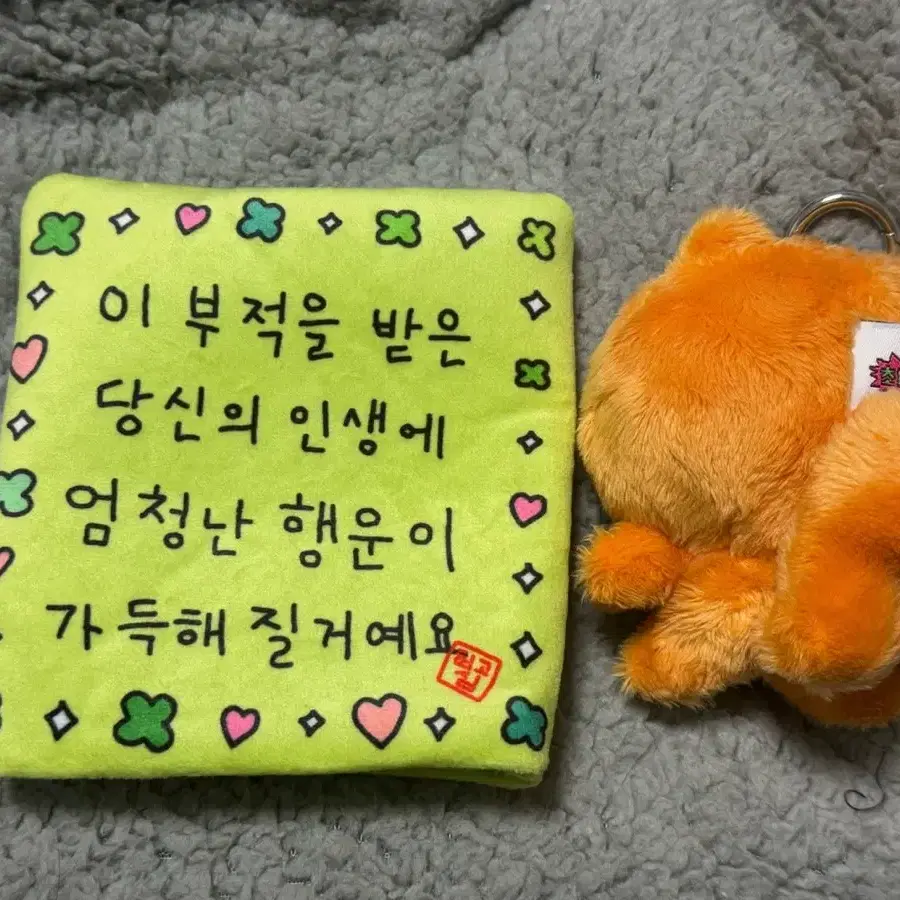 이 부적을 받은
당신의 인생에
엄청난 행운이
가득해 질거예요